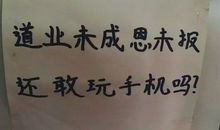 道业未成恩未报
还敢玩手机吗?